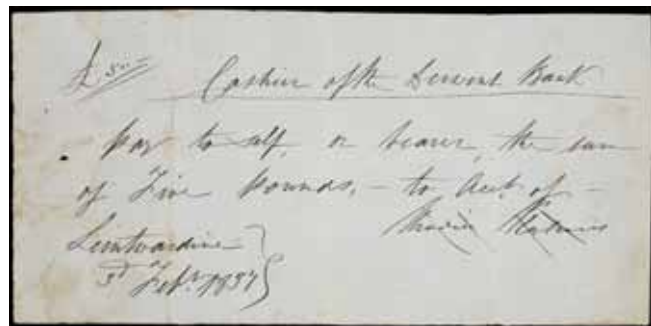 £5
Cashier of the Derwent Bank
Pay to self, or bearer, the sum
of Five Pounds, - to Acct. of -
3rd Feby. 1837